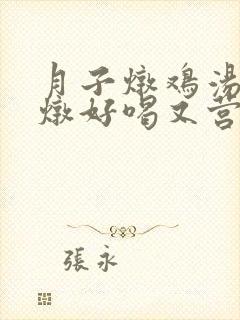 月子燉鸡湯
燉好喝又营
張永